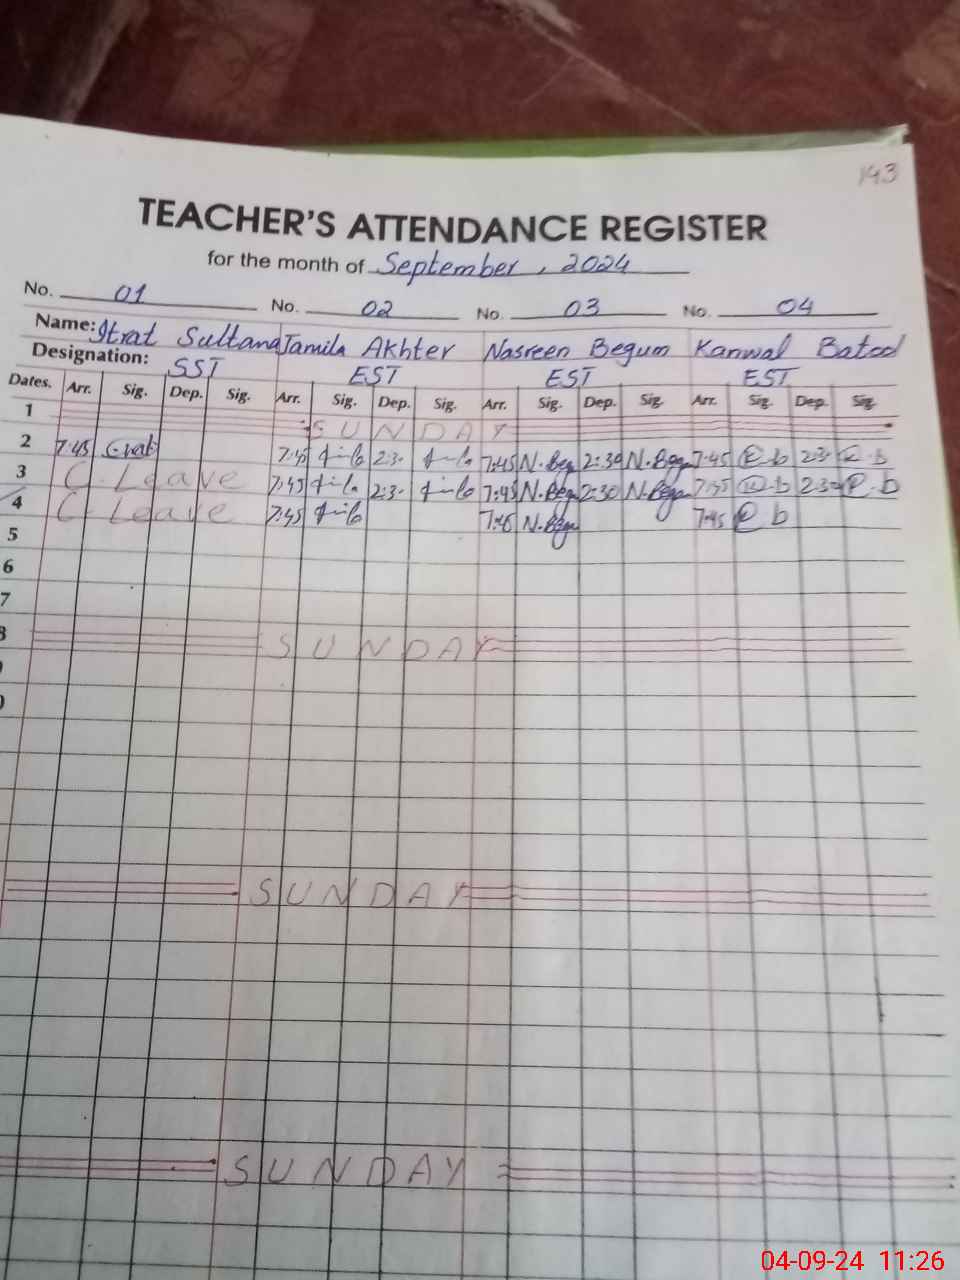 193
TEACHER'S ATTENDANCE REGISTER
for the month of September, 2024
No. 01 No. 02 No. 03 No. 04
Name: Itrat Sultana Jamila Akhter Nasreen Begum Kanwal Batool
Designation: SST EST EST EST
Dates. Arr. Sig. Dep. Sig. Arr. Sig. Dep. Sig. Arr. Sig. Dep. Sig. Arr. Sig. Dep. Sig.
1 SUNDAY
2 7:45 7:45 2:3- 7:45 N.Beg 2:30 N.Begn 7:45 2:3-
3 C. Leave 7:45 2:3- 7:45 N.Begn 2:30 N.Begn 7:45 2:3-
4 C. Leave 7:45 7:45 N.Begn 7:45
5
6
7
8 SUNDAY
SUNDAY
SUNDAY
04-09-24 11:26